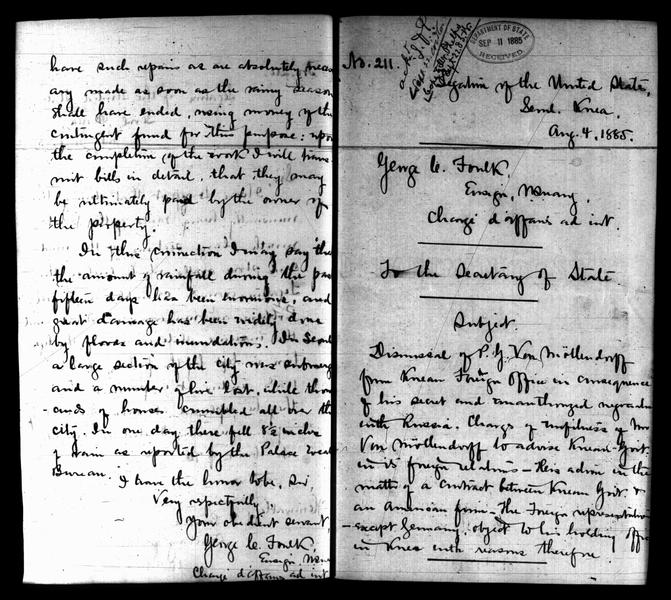 have such repairs as are absolutely neces
ary made as soon as the rainy season
shall have ended, using money of the
contingent fund for this purpose: upon
the completion of the work I will trans-
mit bills in detail, that they may
be ultimately paid by the owner of
the property.
In this connection I may say that
the amount of rainfall during the pas
fifteen days has been enormous, and
great damage has been widely done
by floods and inundations. In Seoul
a large section of the city was submerg
and a number of lives lost, while thous
ands of houses crumbled all over the
city. In one day there fell 8½ inches
of rain as reported by the Palace
Bureau.
I have the honor to be, Sir,
Very respectfully
Your obedient servant,
George C. Foulk,
Ensign,
Chargé d'affaires ad int
DEPARTMENT OF STATE
SEP 11 1885
RECEIVED
No. 211.
Legation of the United States,
Seoul, Korea,
Aug. 4, 1885.
George C. Foulk,
Ensign, U.S. Navy,
Chargé d'affaires ad int.
To the Secretary of State.
Subject.
Dismissal of P. G. Von Möllendorff
from Korean Foreign Office in consequence
of his secret and unauthorized
with Russia. Charge of unfitness of Mr
Von Möllendorff to advise Korean Govt.
in its foreign relations – His action in the
matter of a contract between Korean Govt. &
an American firm – The Foreign representatives
– except Germany, object to his holding office
in Korea with reasons therefore.